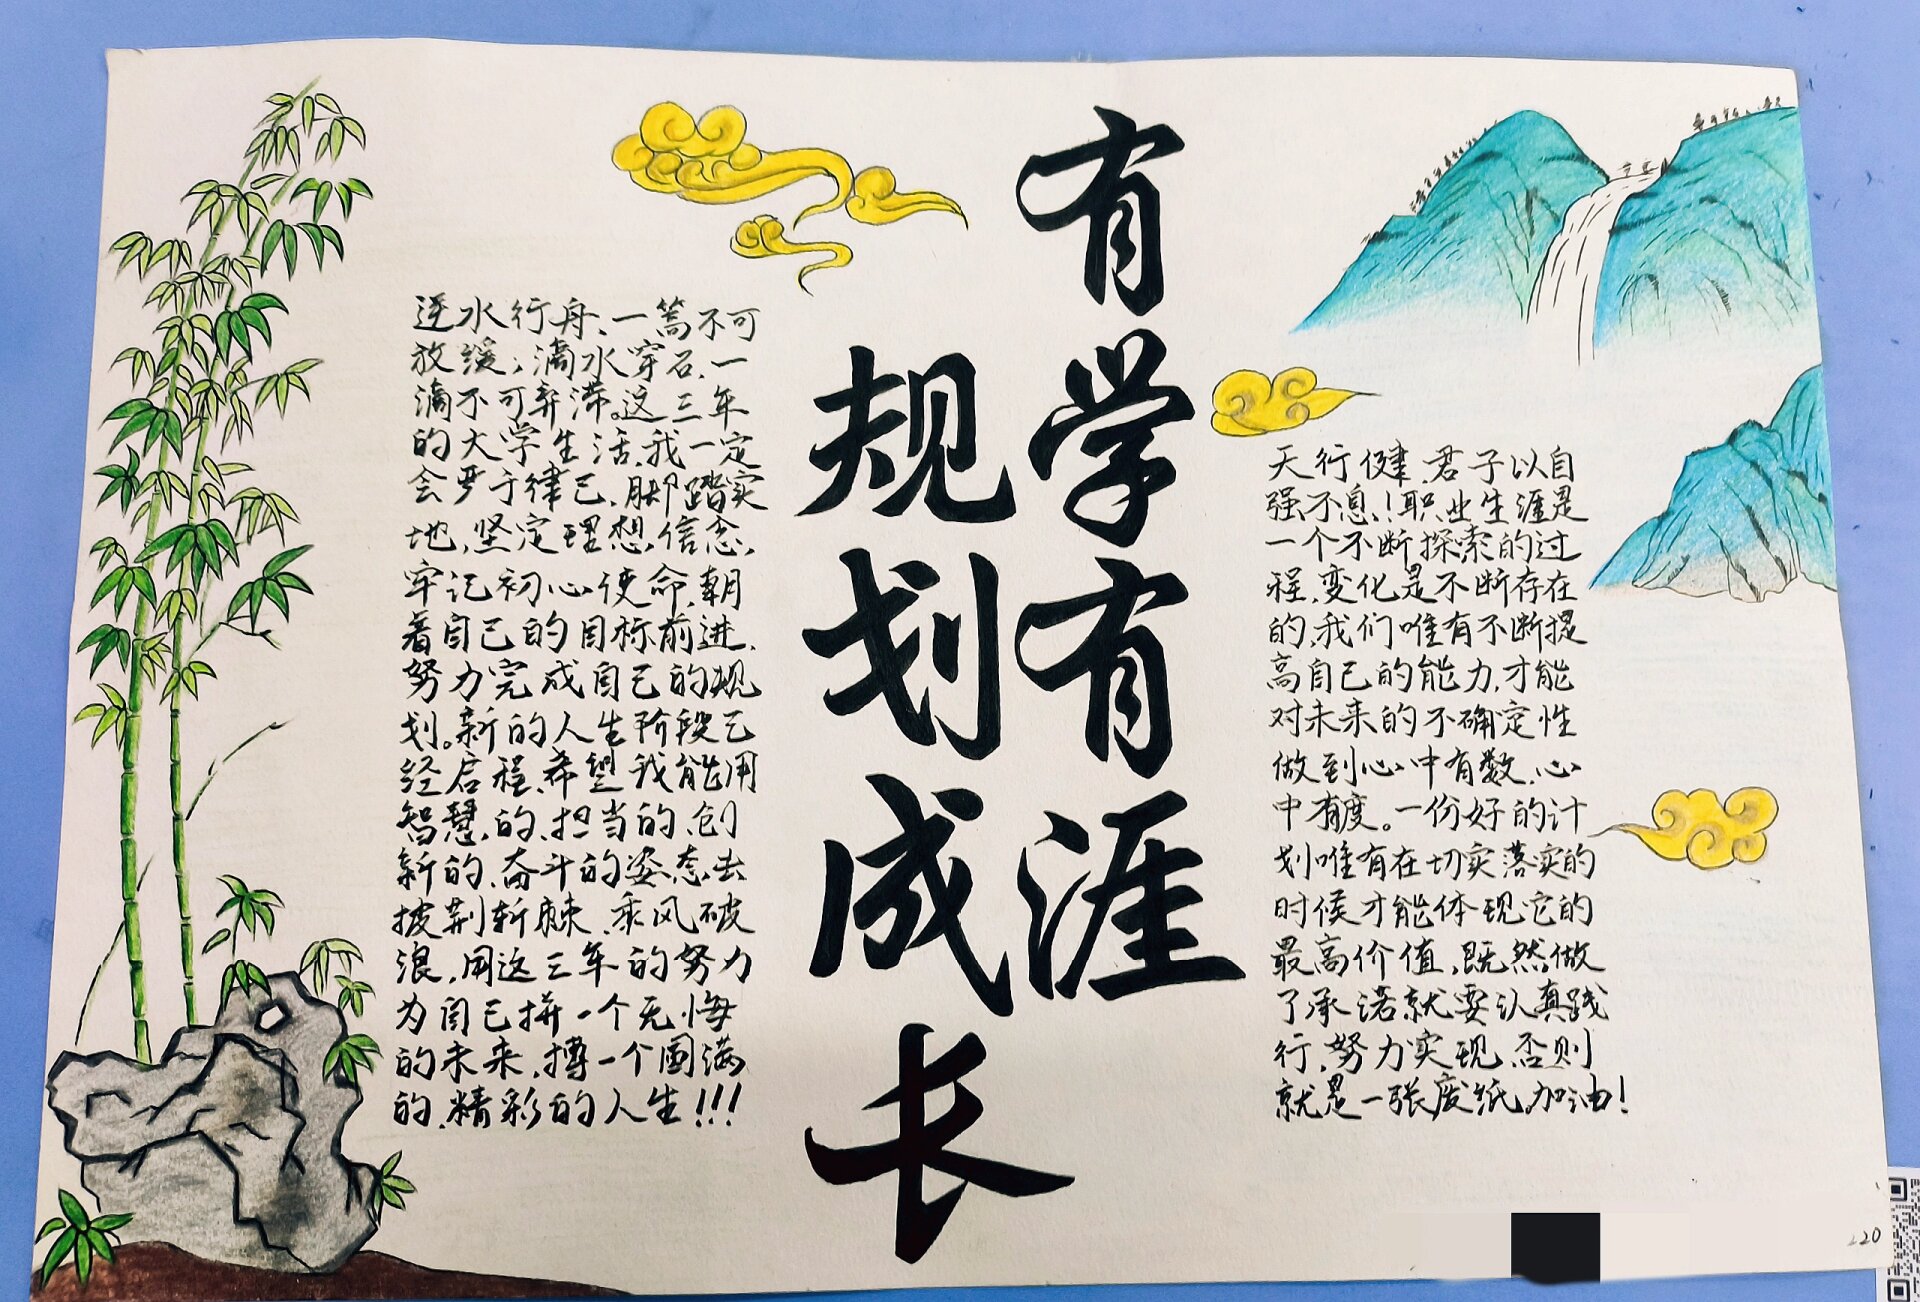 有学有涯
规划成长
逆水行舟、一篙不可
放缓；滴水穿石、一
滴不可弃滞。这三年
的大学生活,我一定
会严于律己,脚踏实
地,坚定理想,信念,
牢记初心使命,朝
着自己的目标前进,
努力完成自己的规
划。新的人生阶段已
经启程,希望我能用
智慧,的、担当的、创
新的、奋斗的姿态去
披荆斩棘、乘风破
浪,用这三年的努力
为自己拼一个无悔
的未来,搏一个圆满
的,精彩的人生!!!
天行健,君子以自
强不息,!职业生涯是
一个不断探索的过
程,变化是不断存在
的,我们唯有不断提
高自己的能力,才能
对未来的不确定性
做到心中有数,心
中有度。一份好的计
划唯有在切实落实的
时候才能体现它的
最高价值,既然做
了承诺就要认真践
行,努力实现,否则
就是一张废纸。加油!
20